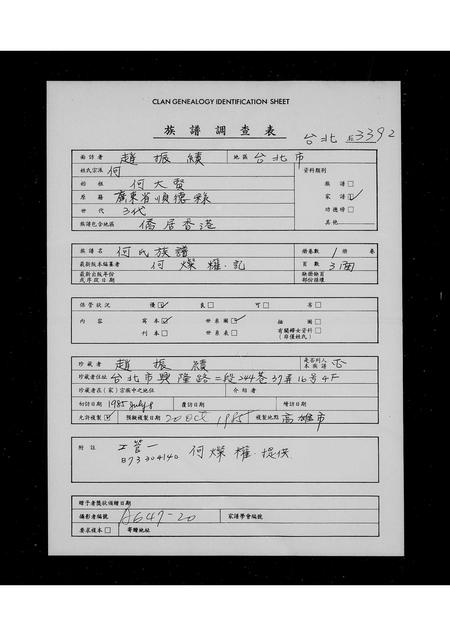 CLAN GENEALOGY IDENTIFICATION SHEET
族譜調查表
台北 3392
面訪者 趙振績 地區 台北市
姓氏宗派 何 資料類別
始祖 何大賢 族譜 □
原籍 廣東省順德縣 家譜 ☑
世代 3代 功德榜 □
族譜包含地區 僑居香港 其他
譜名 何氏族譜 冊卷數 1 冊 卷
最新版本編纂者 何燦權 記 頁數 3面
最新出版年份或序跋日期 缺冊缺頁部份損壞
保管狀況 優 ☑ 良 □ 可 □ 劣 □
內容 寫本 ☑ 世系圖 ☑ 插圖 □
刊本 □ 世系表 □ 有關婦女資料(非僅姓氏) □
珍藏者 趙振績 是否列入本族譜 否
珍藏者住址 台北市興隆路二段244巷37弄16号4F
珍藏者在(家)宗族中之地位 介紹者
初訪日期 1985 July 8 覆訪日期 續訪日期
允許複製 ☑ 預擬複製日期 20 Oct 1985 複製地點 高雄市
附註 工管一 B73304140 何燦權 提供
贈予者獎狀頒贈日期
攝影者編號 A647-20 家譜學會編號
要求複本 □ 寄贈地址